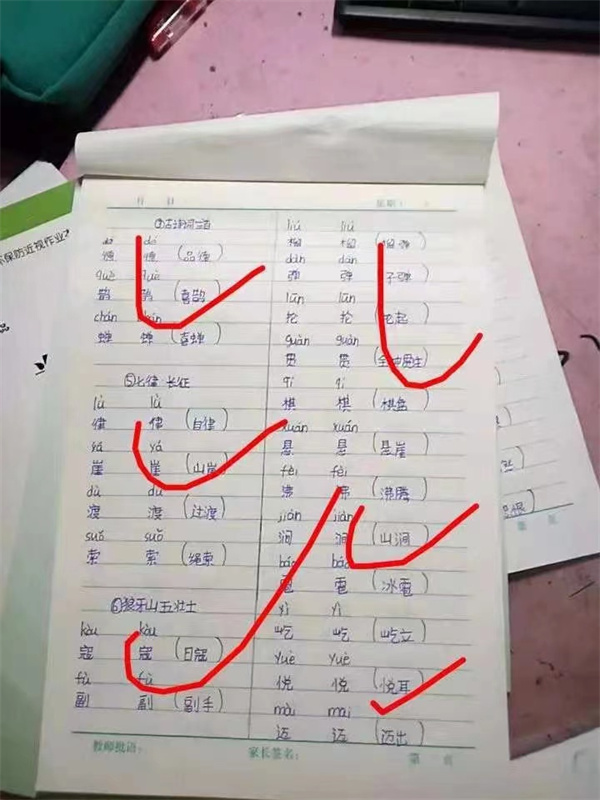 月 日
星期:
③古诗词三首
dé dé
德 德 (品德)
què què
鹊 鹊 (喜鹊)
chán chán
蝉 蝉 (喜蝉)
⑤七律 长征
lǜ lǜ
律 律 (自律)
yá yá
崖 崖 (山崖)
dù dù
渡 渡 (过渡)
suǒ suǒ
索 索 (绳索)
⑥狼牙山五壮士
kòu kòu
寇 寇 (日寇)
fù fù
副 副 (副手)
liú liú
榴 榴 (榴弹)
dàn dàn
弹 弹 (子弹)
lūn lūn
抡 抡 (抡起)
guàn guàn
贯 贯 (全神贯注)
qí qí
棋 棋 (棋盘)
xuán xuán
悬 悬 (悬崖)
fèi fèi
沸 沸 (沸腾)
jiàn jiàn
涧 涧 (山涧)
báo báo
電 電 (冰電)
yì yì
屹 屹 (屹立)
yuè yuè
悦 悦 (悦耳)
mài mài
迈 迈 (迈出)
教师批语: 家长签名: 第 页
环保防近视作业
品
第 页